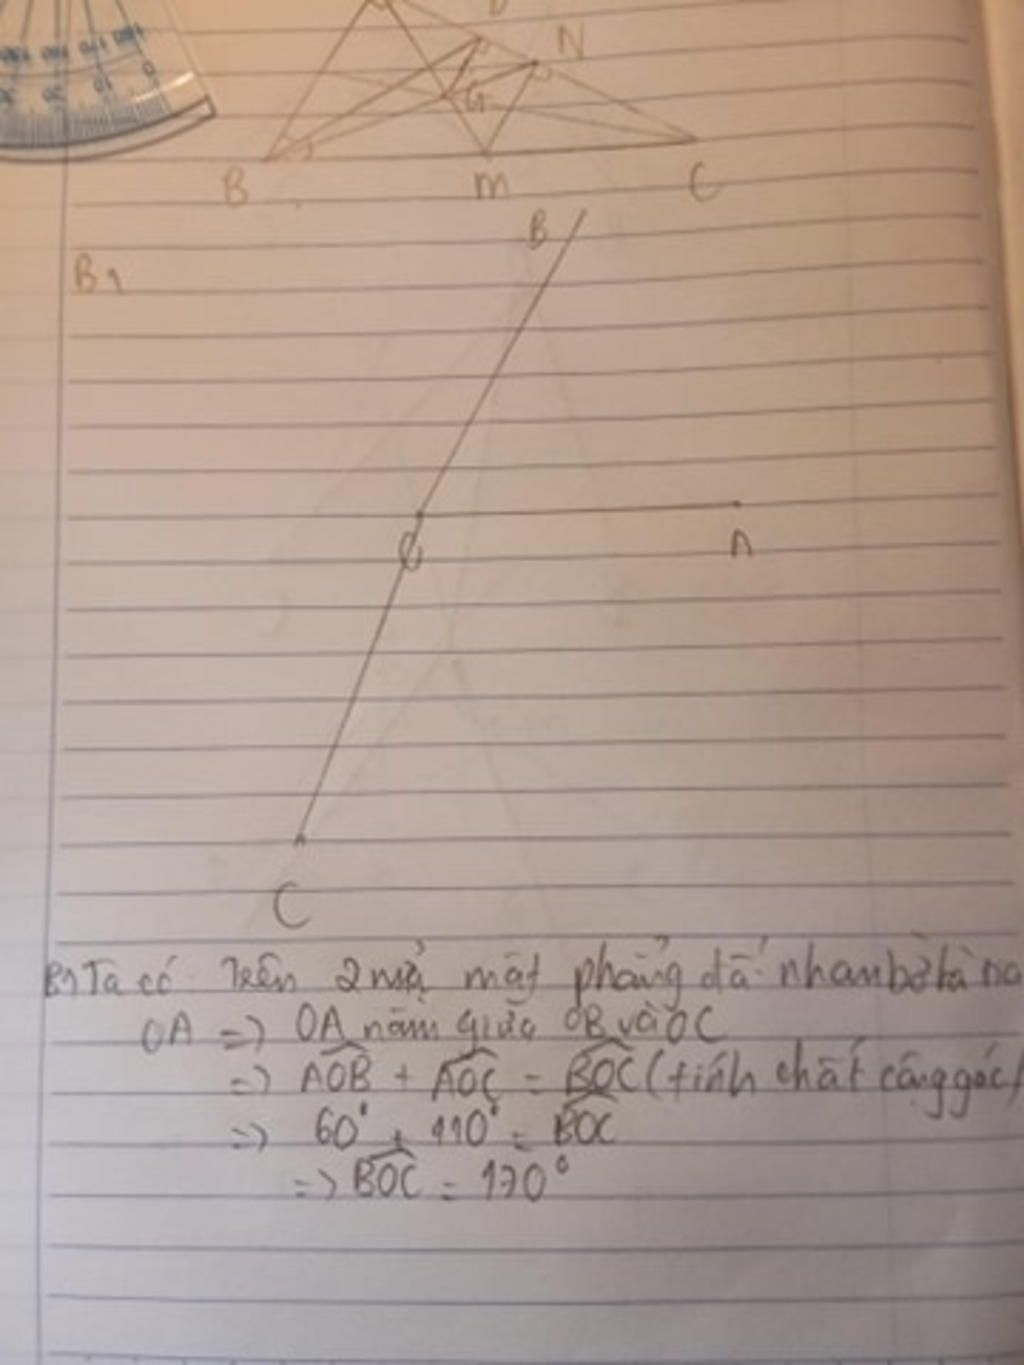 D
N
G
B M C
B
B1
O
A
C
B1 Ta có trên 2 nửa mặt phẳng đối nhau bờ là tia
OA => OA nằm giữa OB và OC
=> AOB + AOC = BOC (tính chất cộng góc)
=> 60° + 110° = BOC
=> BOC = 170°